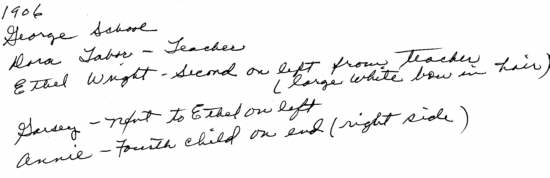 1906
George School
Dora Tabor - Teacher
Ethel Wright - Second on left from teacher
(large white bow in hair)
Garsey - Next to Ethel on left
Annie - Fourth child on end (right side)